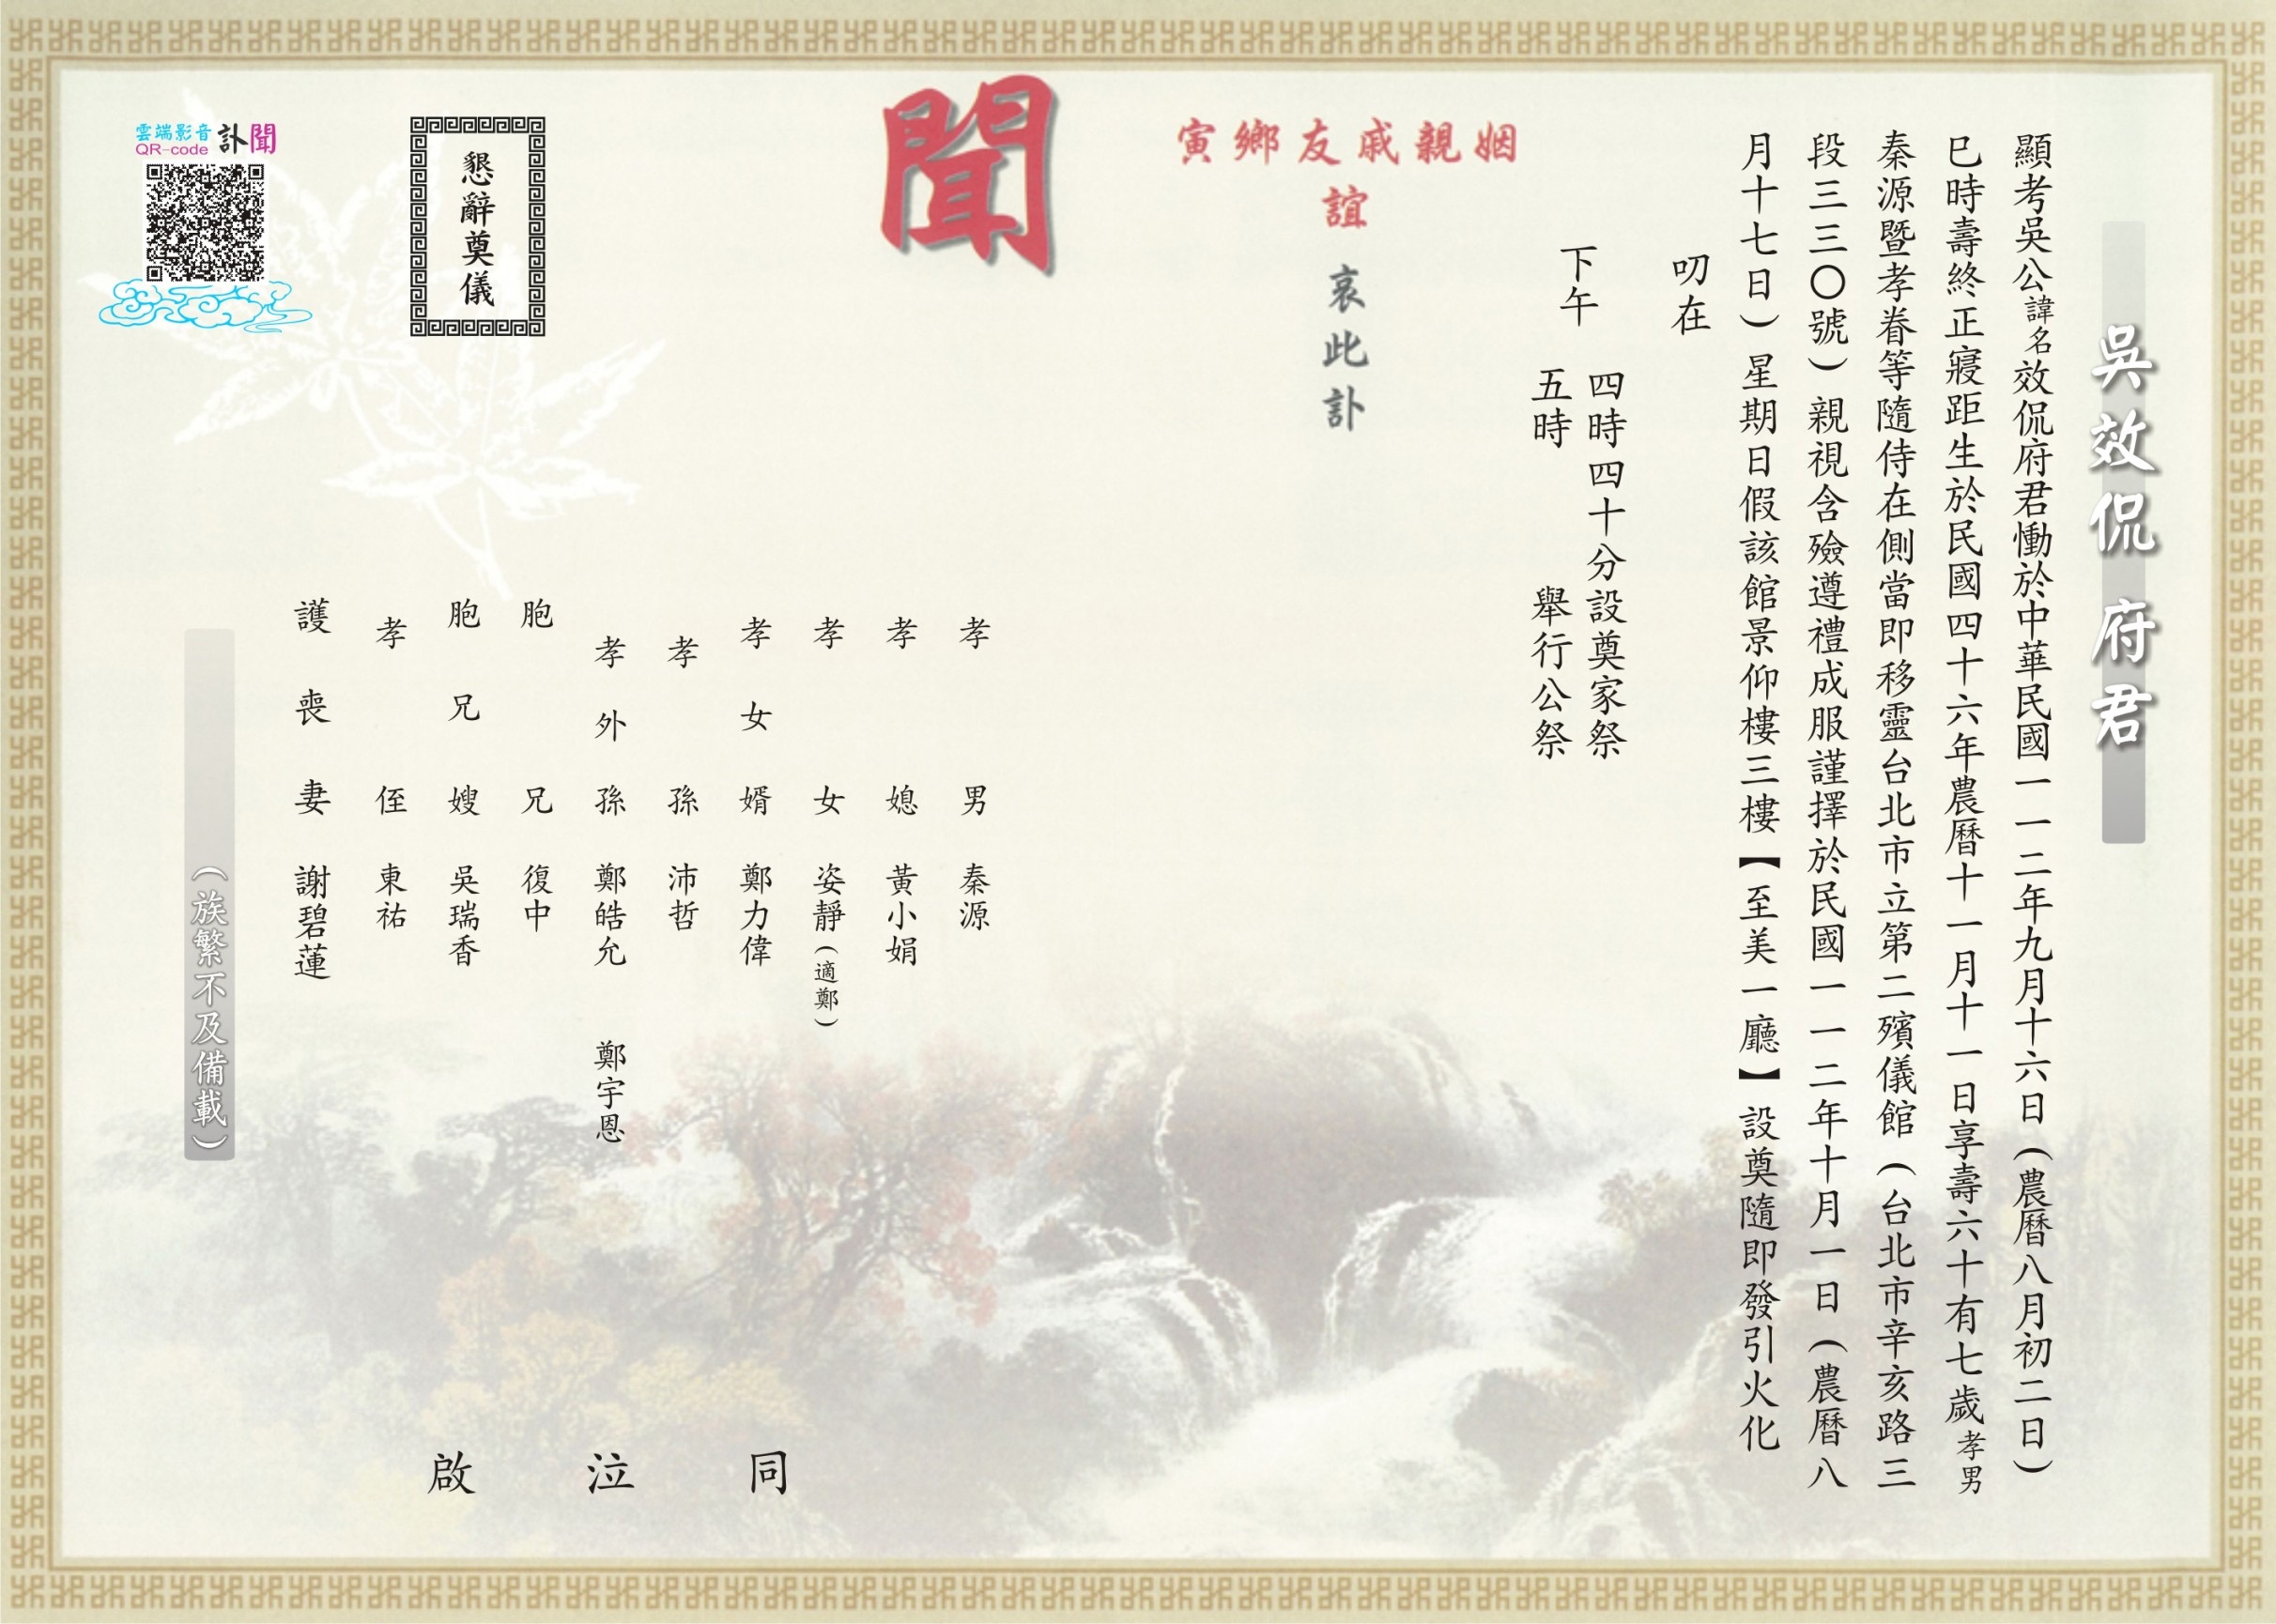 吳效侃 府君
顯考吳公諱名效侃府君慟於中華民國一一二年九月十六日（農曆八月初二日）
巳時壽終正寢距生於民國四十六年農曆十一月十一日享壽六十有七歲孝男
秦源暨孝眷等隨侍在側當即移靈台北市立第二殯儀館（台北市辛亥路三
段三三〇號）親視含殮遵禮成服謹擇於民國一一二年十月一日（農曆八
月十七日）星期日假該館景仰樓三樓【至美一廳】設奠隨即發引火化
叨在
下午
四時四十分設奠家祭
五時 舉行公祭
姻親戚友鄉寅
誼
哀此訃
聞
孝男 秦源
孝媳 黃小娟
孝女 姿靜（適鄭）
孝女婿 鄭力偉
孝孫 沛哲
孝外孫 鄭皓允 鄭宇恩
胞兄 復中
胞兄嫂 吳瑞香
孝侄 東祐
護喪妻 謝碧蓮
同泣啟
（族繁不及備載）
懇辭奠儀
雲端影音
QR-code
訃聞